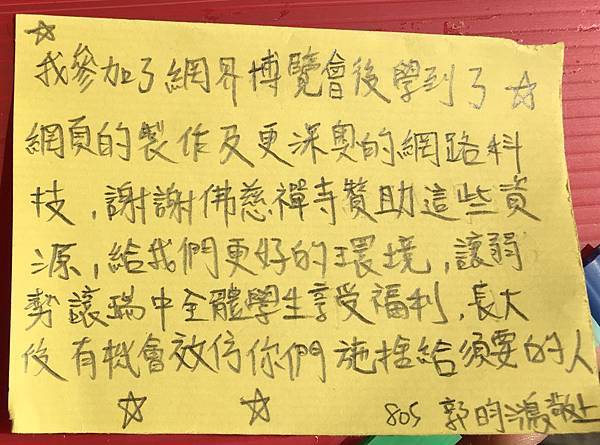 我參加了網界博覽會後學到了
網頁的製作及更深奧的網路科
技,謝謝佛慈禪寺贊助這些資
源,給我們更好的環境,讓弱
勢讓瑞中全體學生享受福利,長大
後有機會效仿你們施捨給須要的人
805 郭昀鴻敬上